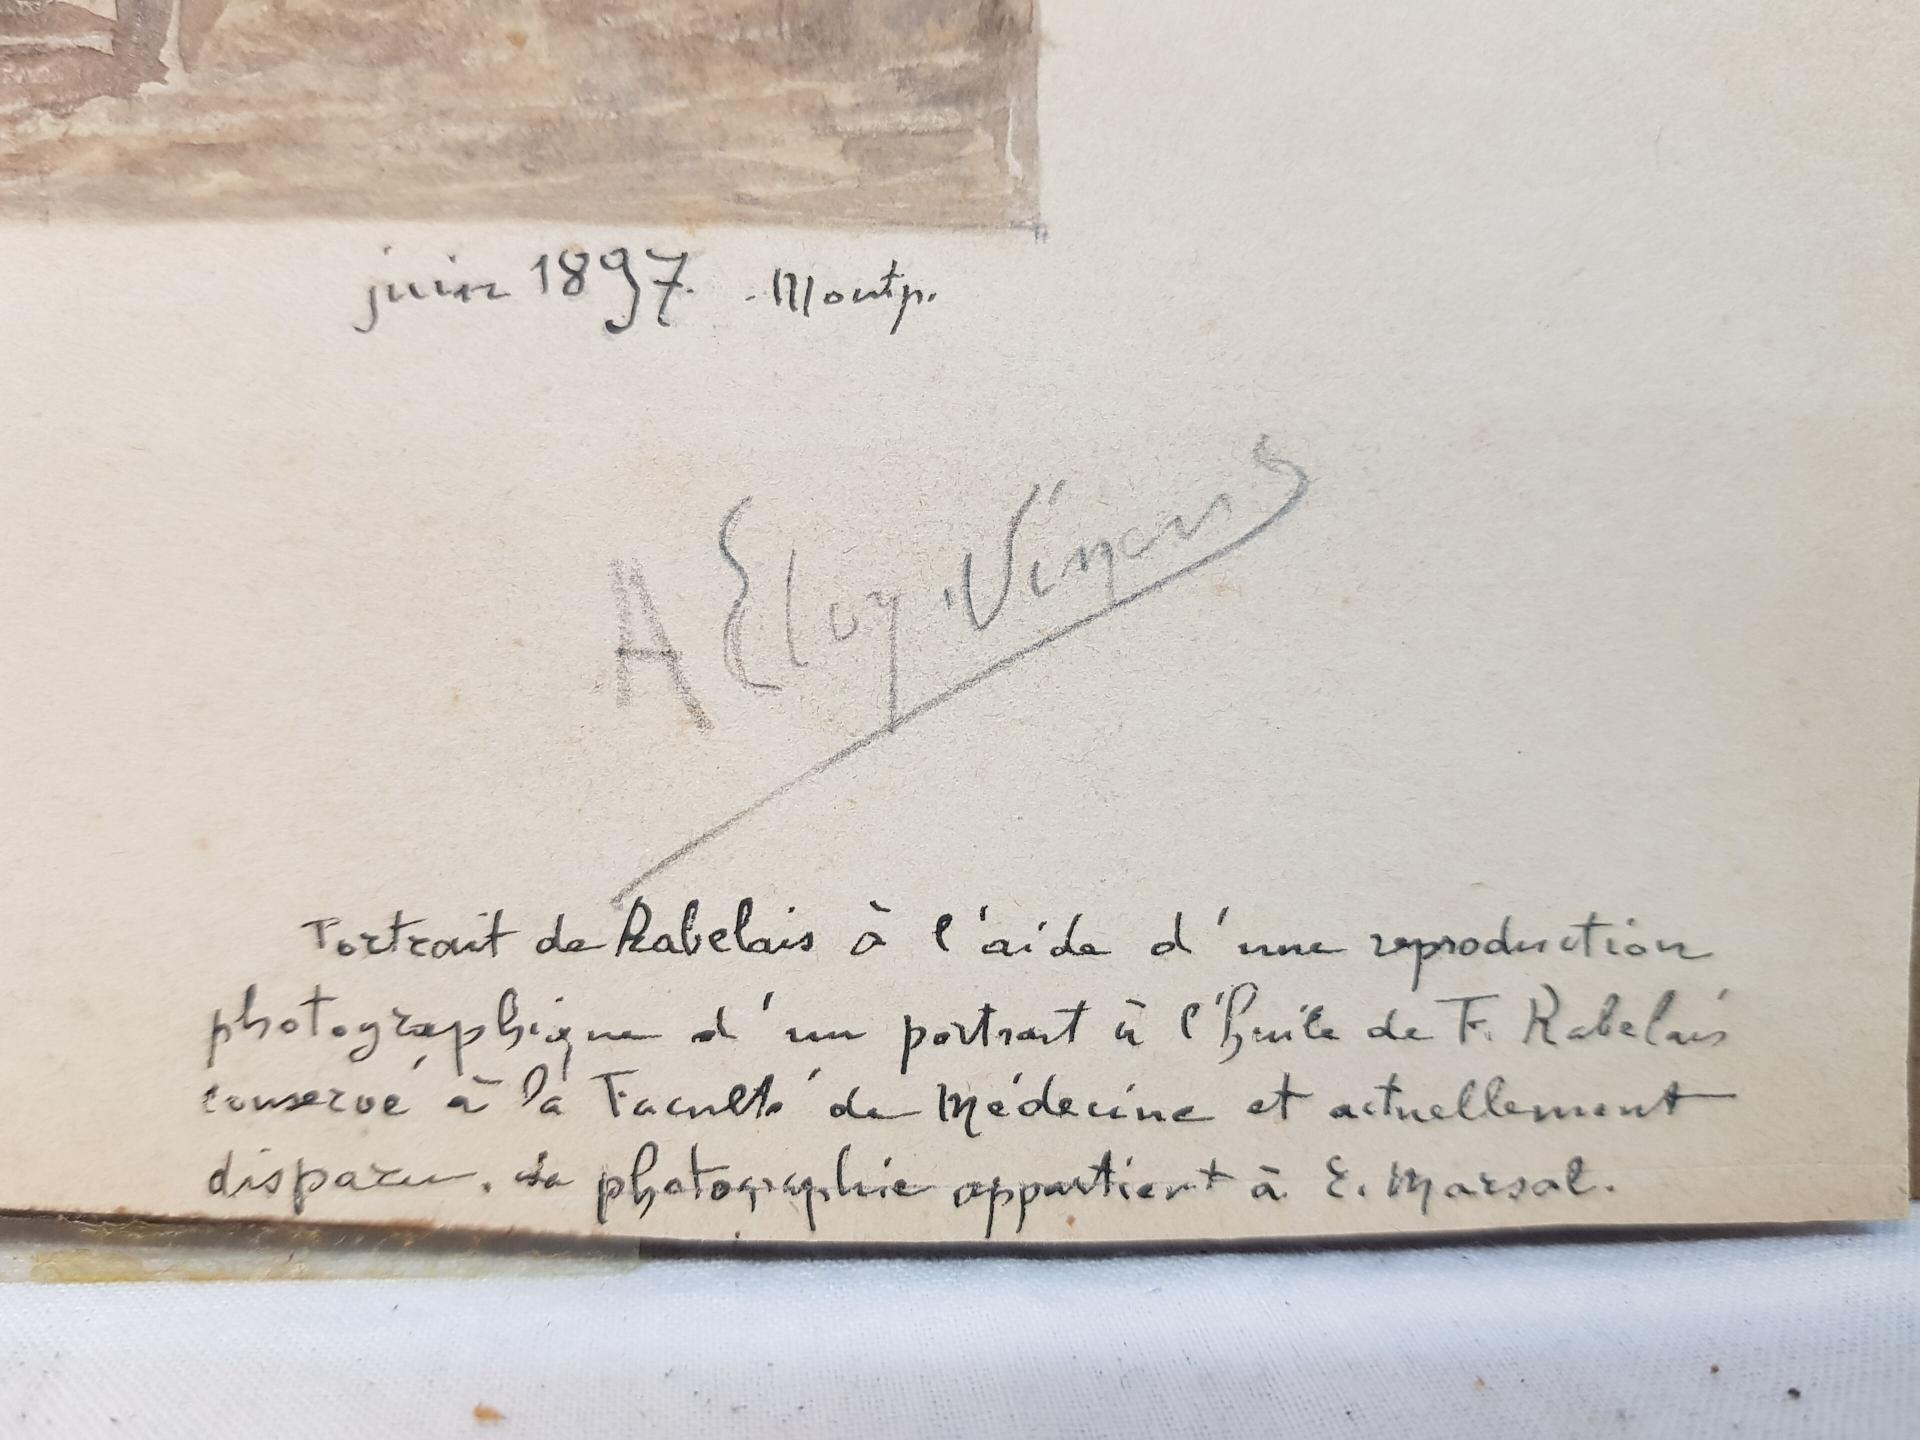 juin 1897. - Montp.
A Eloy-Vincent
Portrait de Rabelais à l'aide d'une reproduction
photographique d'un portrait à l'huile de F. Rabelais
conservé à la Faculté de Médecine et actuellement
disparu. La photographie appartient à E. Marsal.